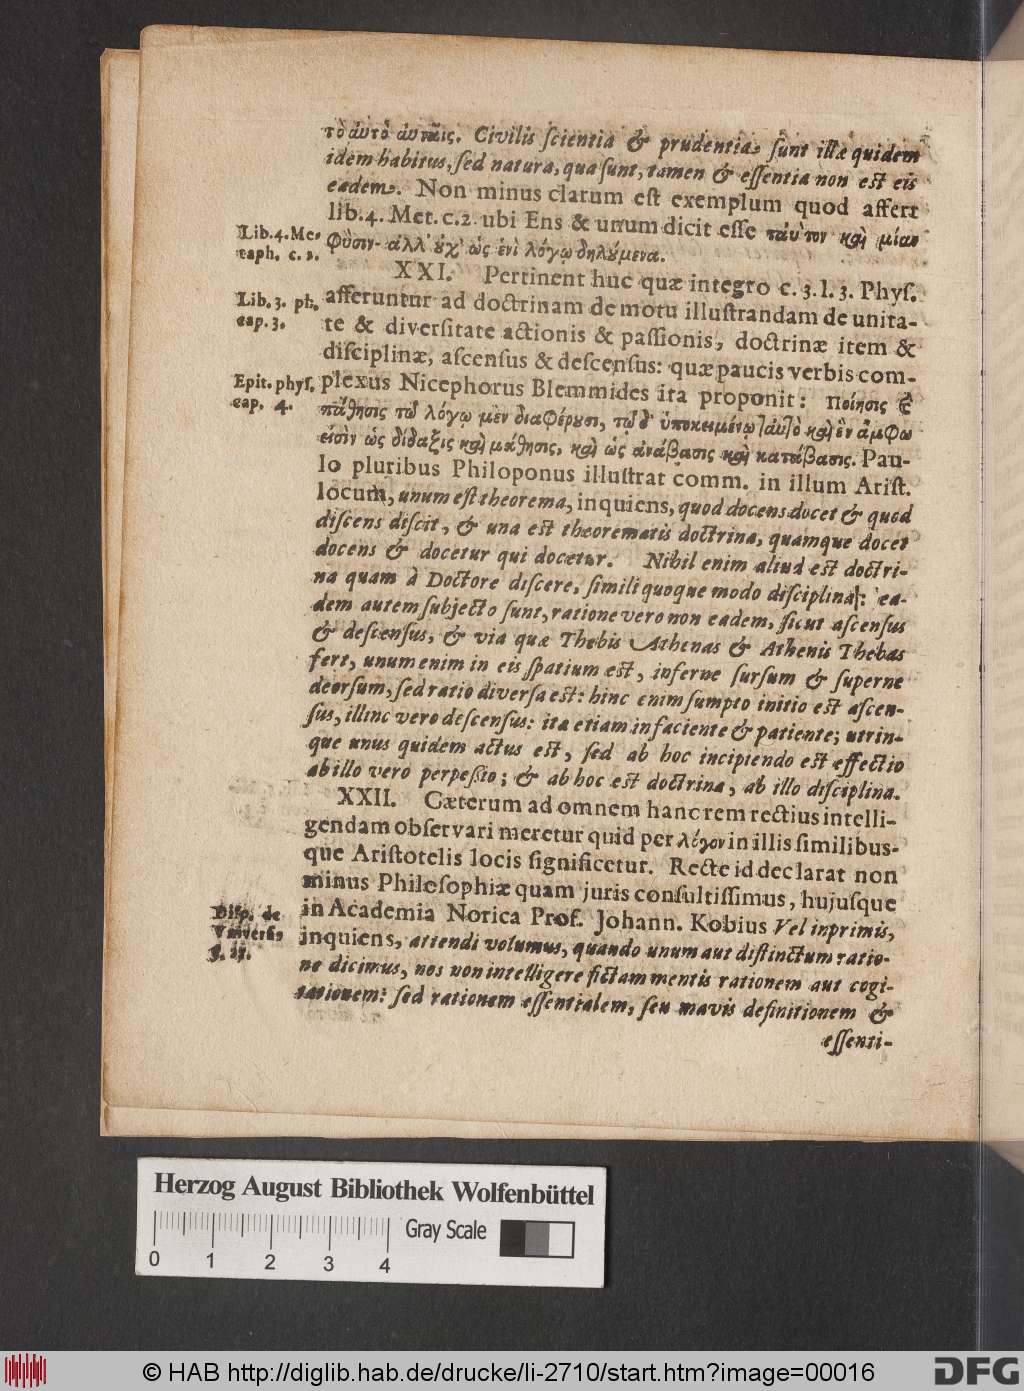 τὸ ἀυτὸ ἀυταῖς. Civilis scientia & prudentia, sunt illæ quidem
idem habitus, sed natura, qua sunt, tamen & essentia non est eis
eadem. Non minus clarum est exemplum quod affert
lib. 4. Met. c. 2. ubi Ens & unum dicit esse ταὐτὸν καὶ μίαν
Lib. 4. Me-
taph. c. 2.
φύσιν· ἀλλ' ὐχ' ὡς ἑνὶ λόγῳ δηλύμενα.
XXI. Pertinent huc quæ integro c. 3. l. 3. Phys.
Lib. 3. ph.
cap. 3.
afferuntur ad doctrinam de motu illustrandam de unita-
te & diversitate actionis & passionis, doctrinæ item &
disciplinæ, ascensus & descensus: quæ paucis verbis com-
Epit. phys.
cap. 4.
plexus Nicephorus Blemmides ita proponit: ποίησις &
πάθησις τῷ λόγῳ μὲν διαφέρυσι, τῷ δ' ὑποκειμένῳ ταὐτὸ καὶ ἓν ἄμφω
εἰσὶν ὡς δίδαξις καὶ μάθησις, καὶ ὡς ἀνάβασις καὶ κατάβασις. Pau-
lo pluribus Philoponus illustrat comm. in illum Arist.
locum, unum est theorema, inquiens, quod docens docet & quod
discens discit, & una est theorematis doctrina, quamque docet
docens & docetur qui docetur. Nihil enim aliud est doctri-
na quam à Doctore discere, simili quoque modo disciplina: ea-
dem autem subjecto sunt, ratione vero non eadem, sicut ascensus
& descensus, & via quæ Thebis Athenas & Athenis Thebas
fert, unum enim in eis spatium est, inferne sursum & superne
deorsum, sed ratio diversa est: hinc enim sumpto initio est ascen-
sus, illinc vero descensus: ita etiam in faciente & patiente; utrin-
que unus quidem actus est, sed ab hoc incipiendo est effectio
ab illo vero perpessio; & ab hoc est doctrina, ab illo disciplina.
XXII. Cæterum ad omnem hanc rem rectius intelli-
gendam observari meretur quid per λόγον in illis similibus-
que Aristotelis locis significetur. Recte id declarat non
minus Philosophiæ quam juris consultissimus, hujusque
Disp. de
Univers.
in Academia Norica Prof. Johann. Kobius Vel inprimis,
inquiens, attendi volumus, quando unum aut distinctum ratio-
ne dicimus, nos non intelligere fictam mentis rationem aut cogi-
tationem: sed rationem essentialem, seu mavis definitionem &
essenti-
Herzog August Bibliothek Wolfenbüttel
Gray Scale
0 1 2 3 4
© HAB http://diglib.hab.de/drucke/li-2710/start.htm?image=00016
DFG